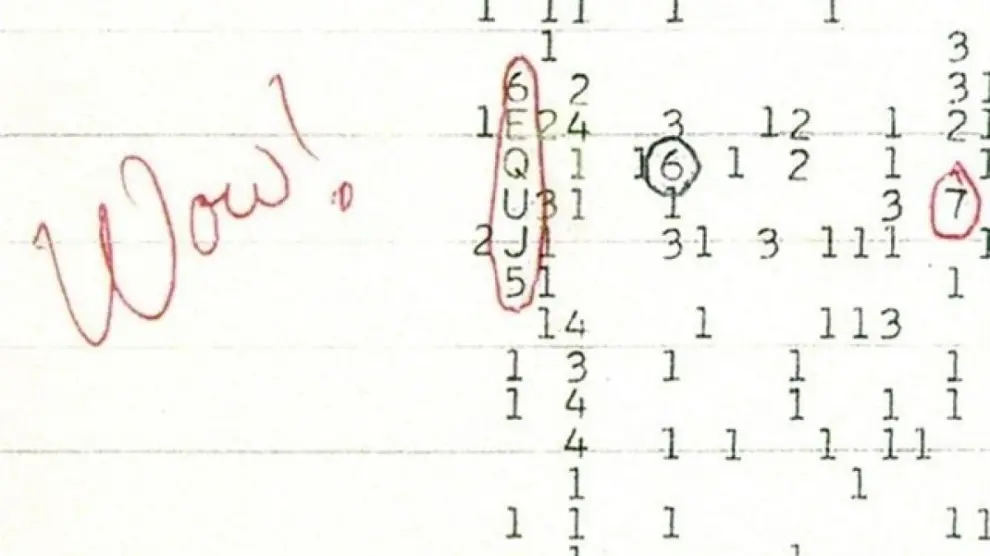 Wow!
1 11 1 1
1 3
6 2 31
1E24 3 12 1 21
Q 1 16 1 2 1 1
U31 1 3 7
2J1 31 3 111 1
51 1
14 1 113
1 3 1 1 1
1 4 1 1 1
4 1 1 1 11
1 1
1 1 1 11